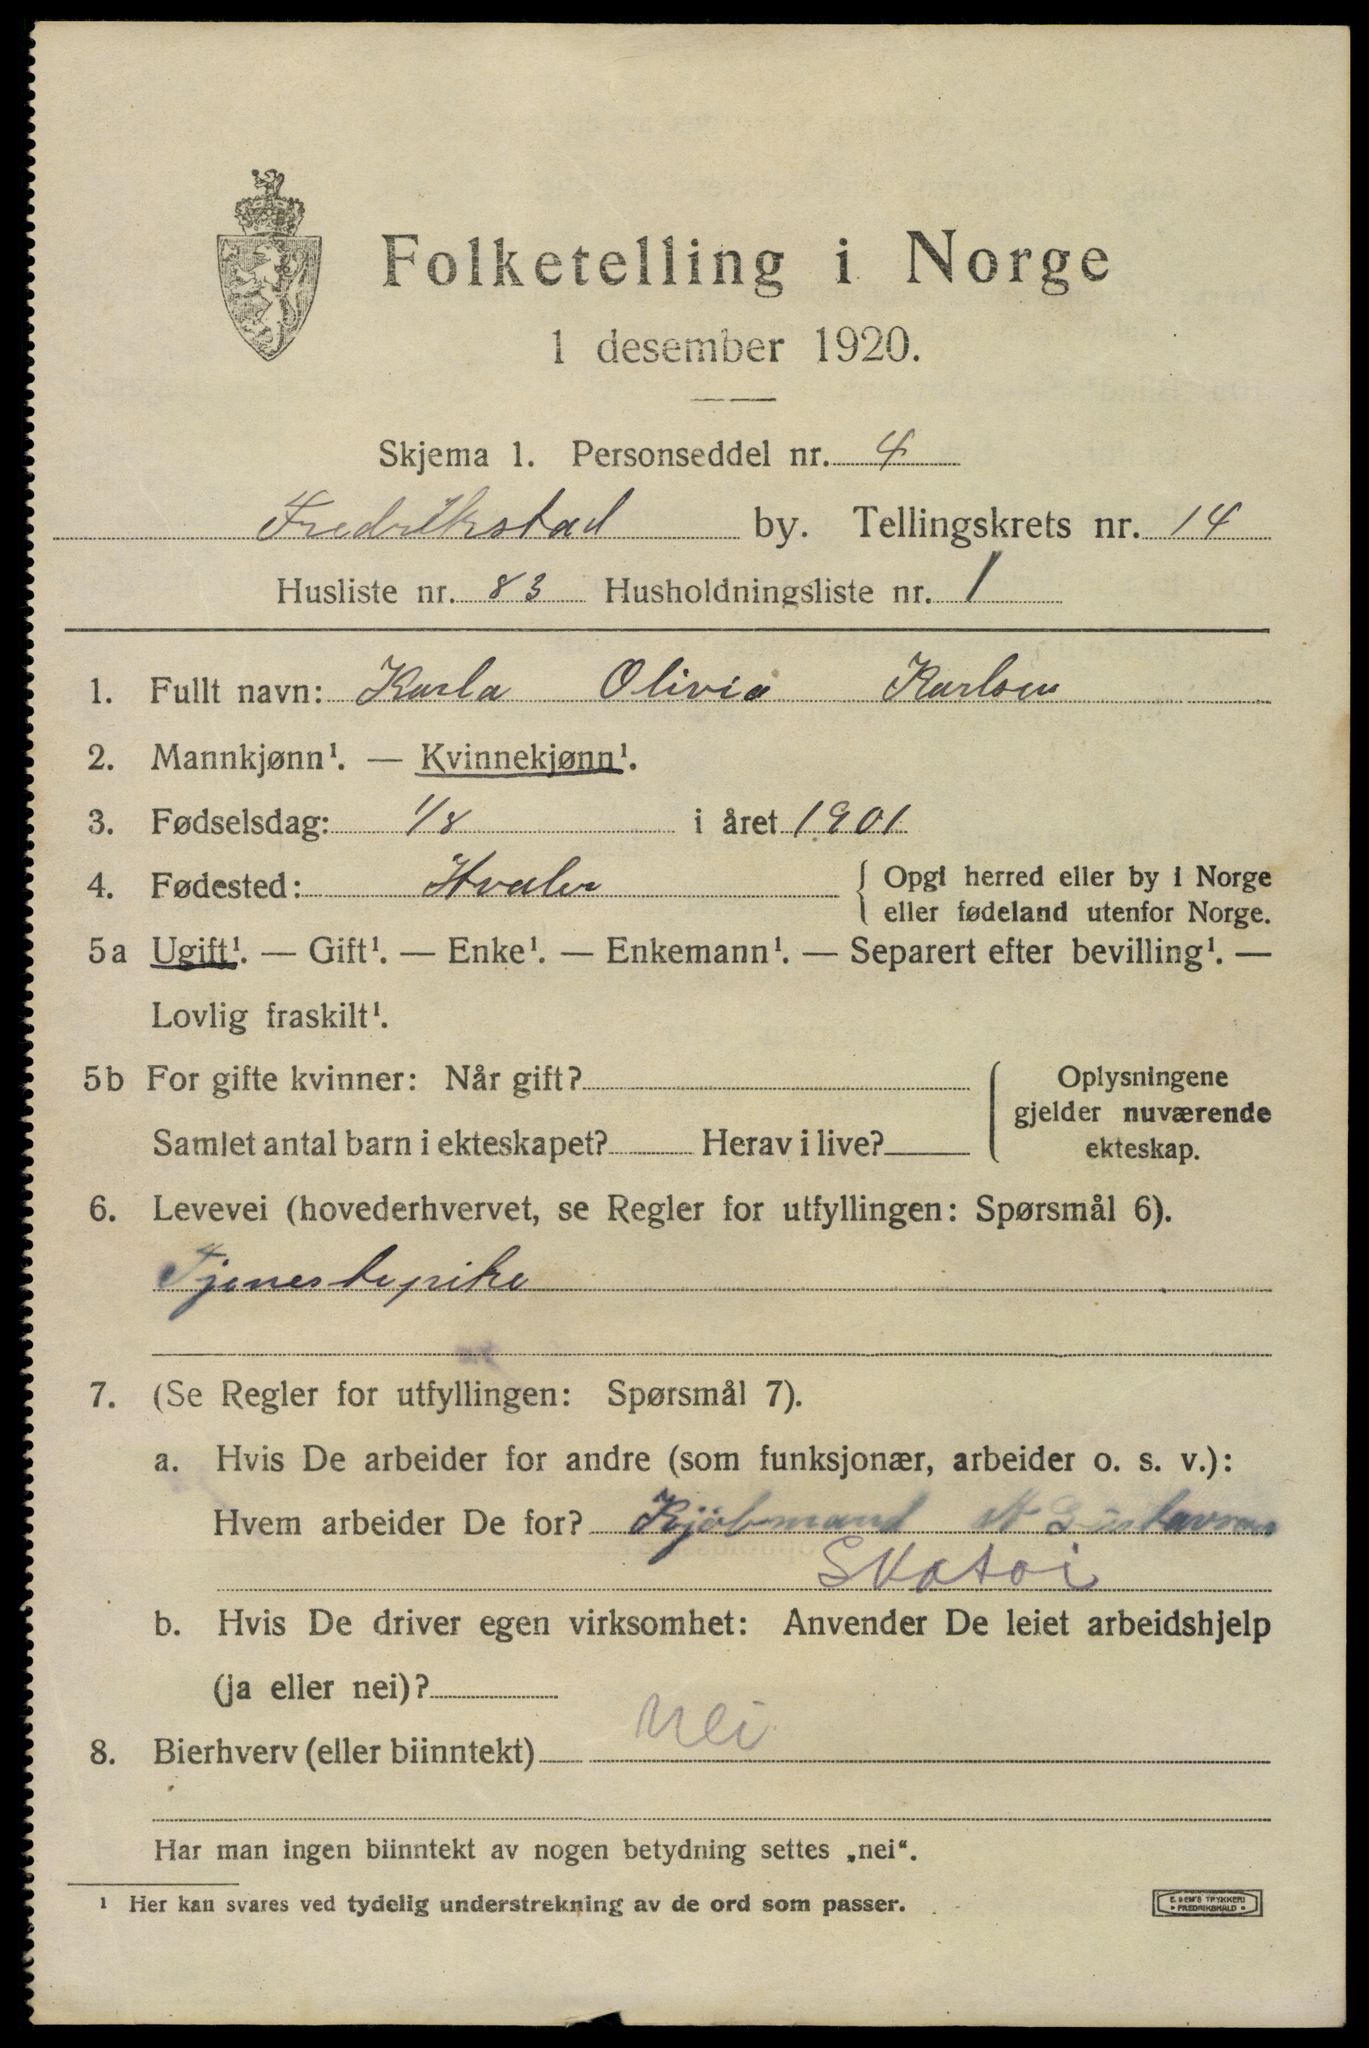 Folketelling i Norge
1 desember 1920.
Skjema 1. Personseddel nr. 4
Fredrikstad by. Tellingskrets nr. 14
Husliste nr. 83 Husholdningsliste nr. 1
1. Fullt navn: Karla Olivia Karlsen
2. Mannkjønn¹. — Kvinnekjønn¹.
3. Fødselsdag: 1/8 i året 1901
4. Fødested: Hvaler { Opgi herred eller by i Norge
eller fødeland utenfor Norge.
5a Ugift¹. — Gift¹. — Enke¹. — Enkemann¹. — Separert efter bevilling¹. —
Lovlig fraskilt¹.
5b For gifte kvinner: Når gift? Oplysningene
gjelder nuværende
Samlet antal barn i ekteskapet? Herav i live? ekteskap.
6. Levevei (hovederhvervet, se Regler for utfyllingen: Spørsmål 6).
Tjenestepike
7. (Se Regler for utfyllingen: Spørsmål 7).
a. Hvis De arbeider for andre (som funksjonær, arbeider o. s. v.):
Hvem arbeider De for? Kjøbmand Gustavsen
b. Hvis De driver egen virksomhet: Anvender De leiet arbeidshjelp
(ja eller nei)?
8. Bierhverv (eller biinntekt) Nei
Har man ingen biinntekt av nogen betydning settes „nei“.
¹ Her kan svares ved tydelig understrekning av de ord som passer.
E. SEM'S TRYKKERI
FREDRIKSHALD